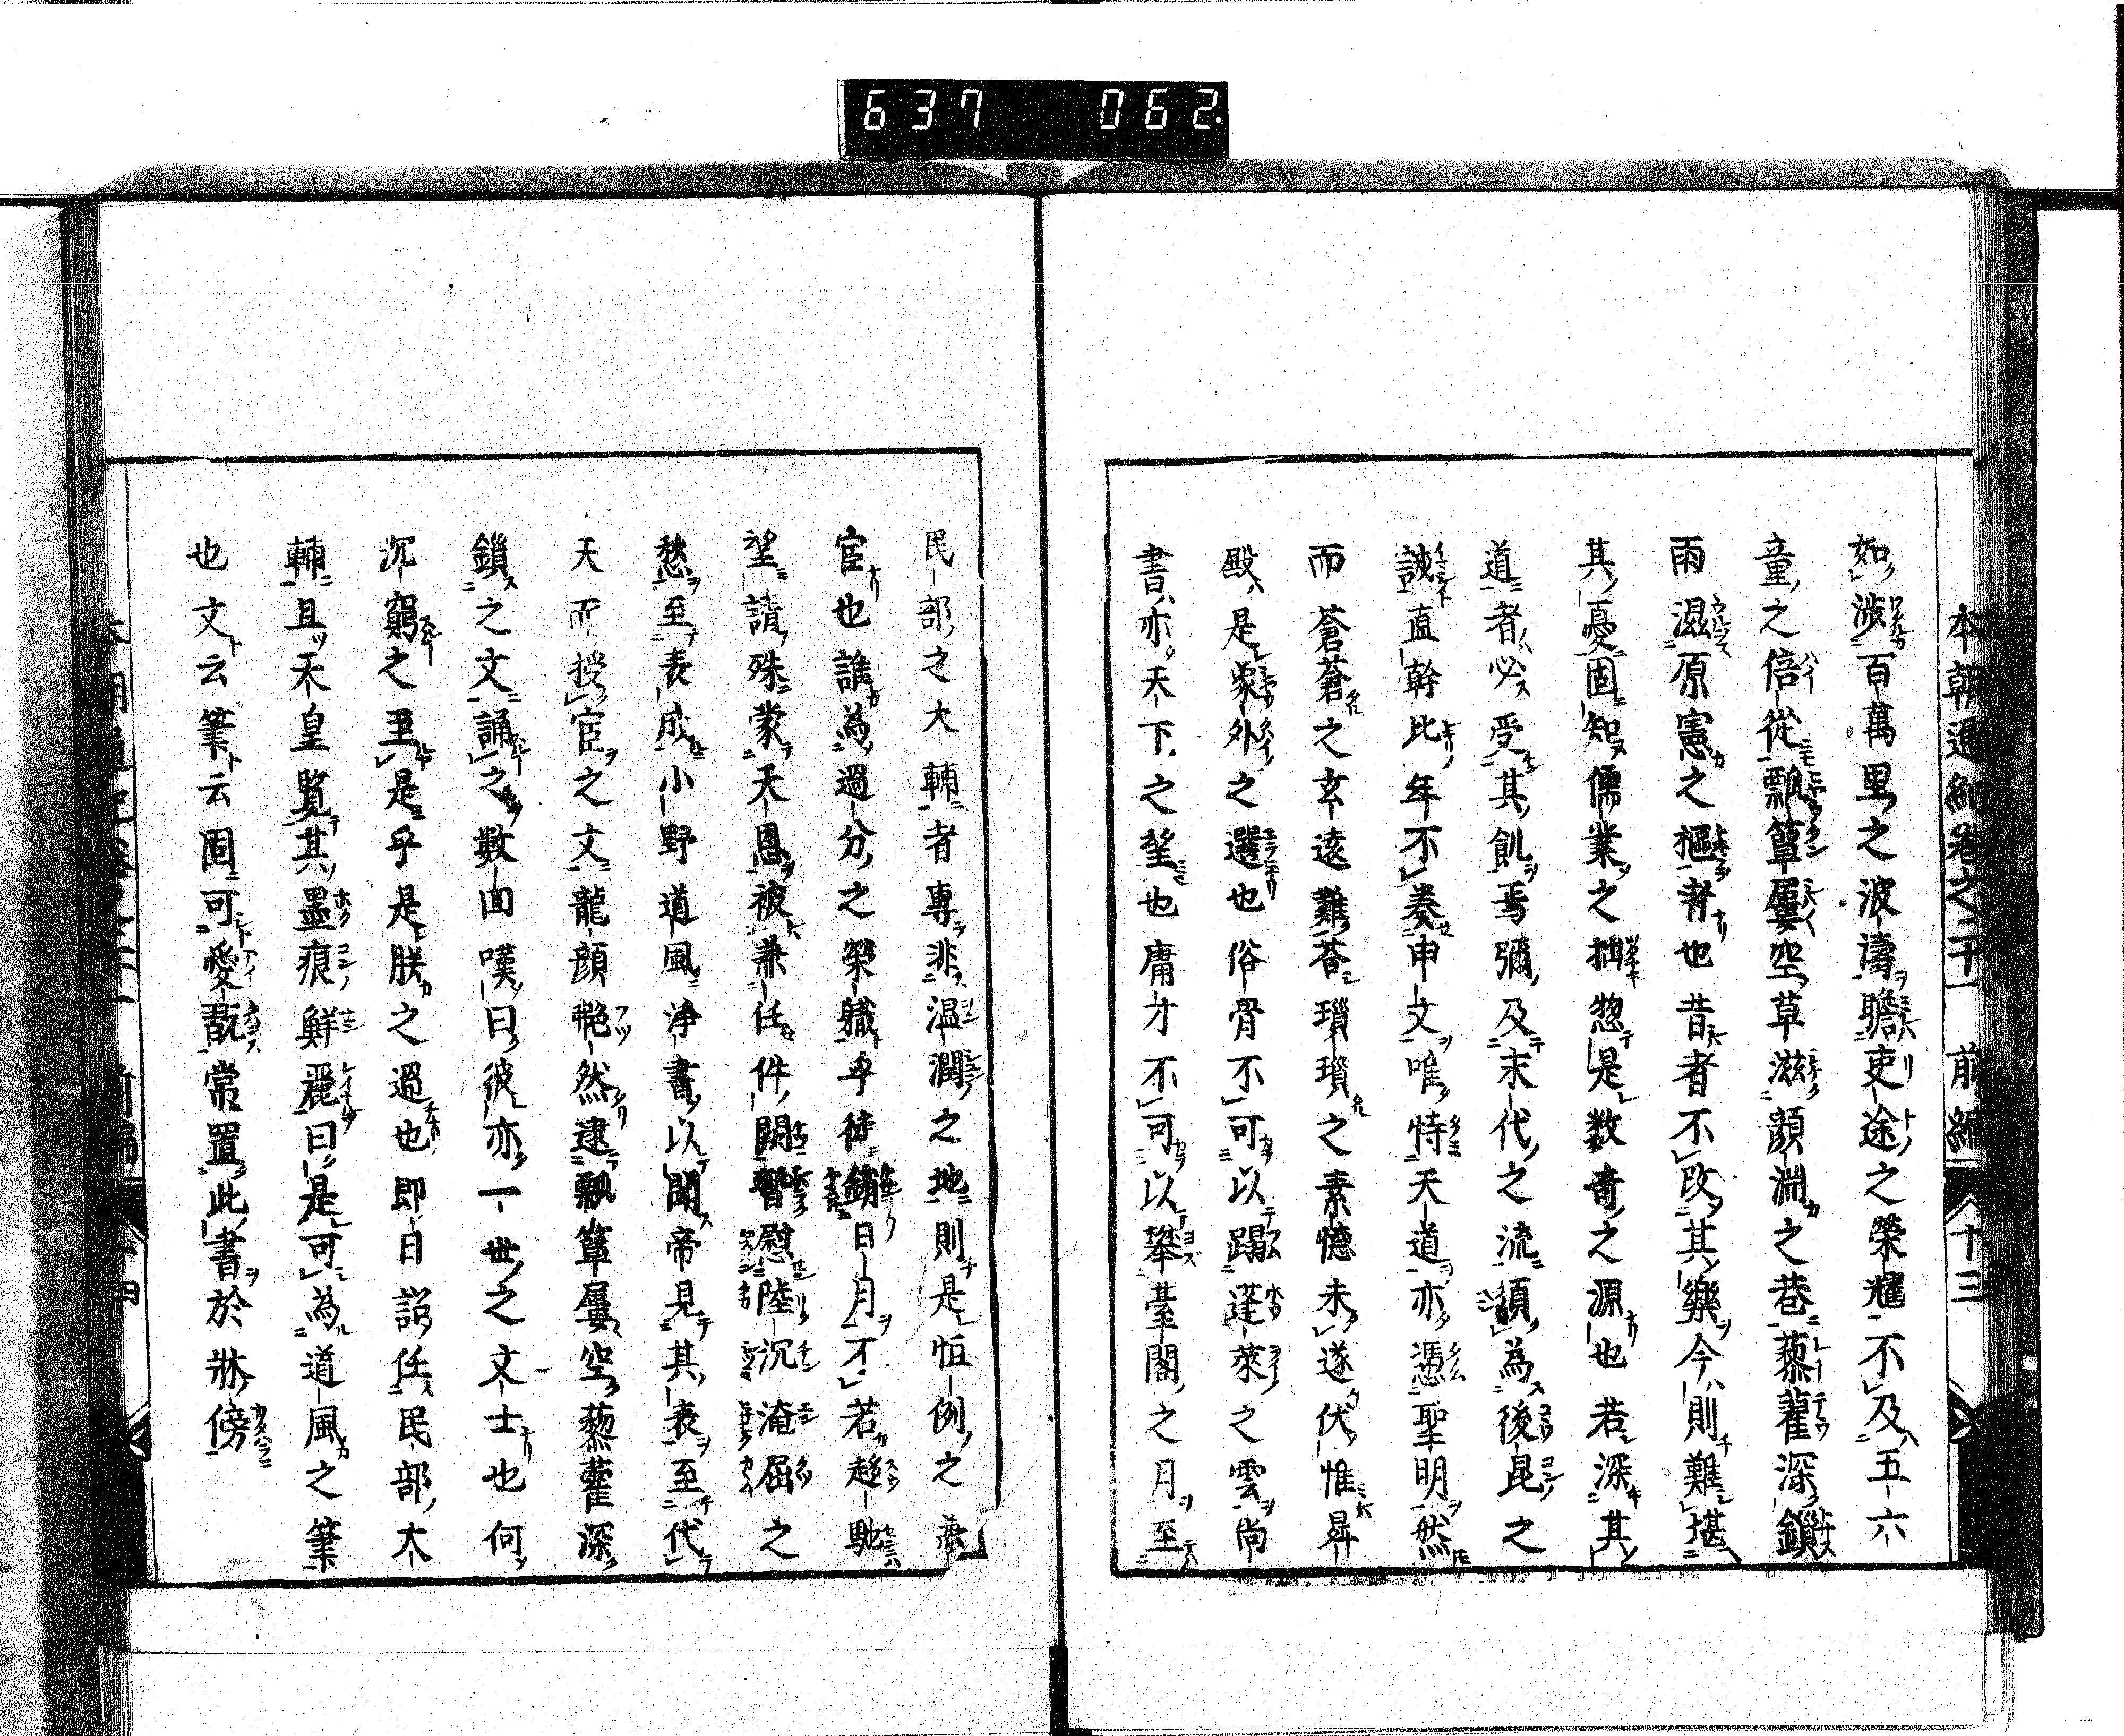 637 062
本朝通紀卷之二十一 前編 十三
如渉百萬里之波濤瞻吏途之榮耀不及五六
童之倍從瓢簞屢空草滋顔淵之巷藜藋深鎖
雨滋原憲之樞者也昔者不改其樂今則難堪
其憂固知儒業之拙惣是数奇之源也若深其
道者必受其飢焉彌及末代之流須為後昆之
誡直幹比年不奏申文唯恃天道亦憑聖明然
而蒼蒼之玄遠難荅瑣瑣之素憶未遂伏惟昇
殿是象外之選也俗骨不可以蹋蓬萊之雲尚
書亦天下之望也庸才不可以攀臺閣之月至
民部之大輔者專非温潤之地則是恒例之兼
官也誰為過分之榮職乎徒銷日月不若趍馳
望請殊蒙天恩被兼任件闕暫慰陸沉淹屈之
愁至表成小野道風淨書以聞帝見其表至代
天而授官之文龍顔艴然逮瓢簞屢空藜藋深
鎖之文誦之數回嘆曰彼亦一世之文士也何
沉窮之至是乎是朕之過也即日詔任民部大
輔且天皇覧其墨痕鮮麗曰是可為道風之筆
也文云筆云固可愛翫常置此書於牀傍